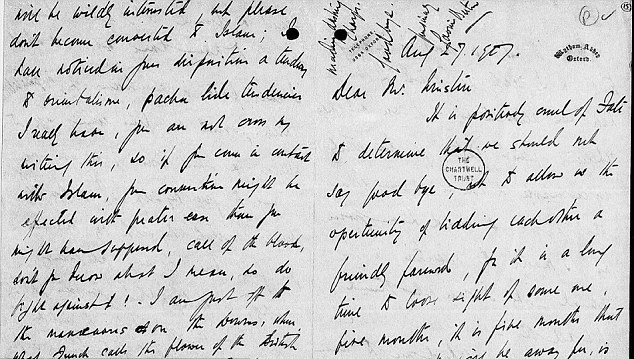 will be wildly interested but please
don't become converted to Islam; I
have noticed in your disposition a tendency
to orientalism, pasha like tendencies
I really have, you are not cross my
writing this, so if you come in contact
with Islam, your conversion might be
effected with greater ease than you
might have supposed, call of the blood,
don't you know what I mean, so do
fight against it! - I am just off to
the on the Downs, when
what Punch calls the flower of the British
15
Wytham Abbey
Oxford
Aug 27. 1907.
Dear Mr. Winston
It is positively cruel of Fate
to determine that we should not
say good bye, to allow us the
opertunity of bidding eachother a
friendly farewell, for it is a long
time to loose sight of some one,
five months, it is five months that
be away for, is
THE
CHARTWELL
TRUST